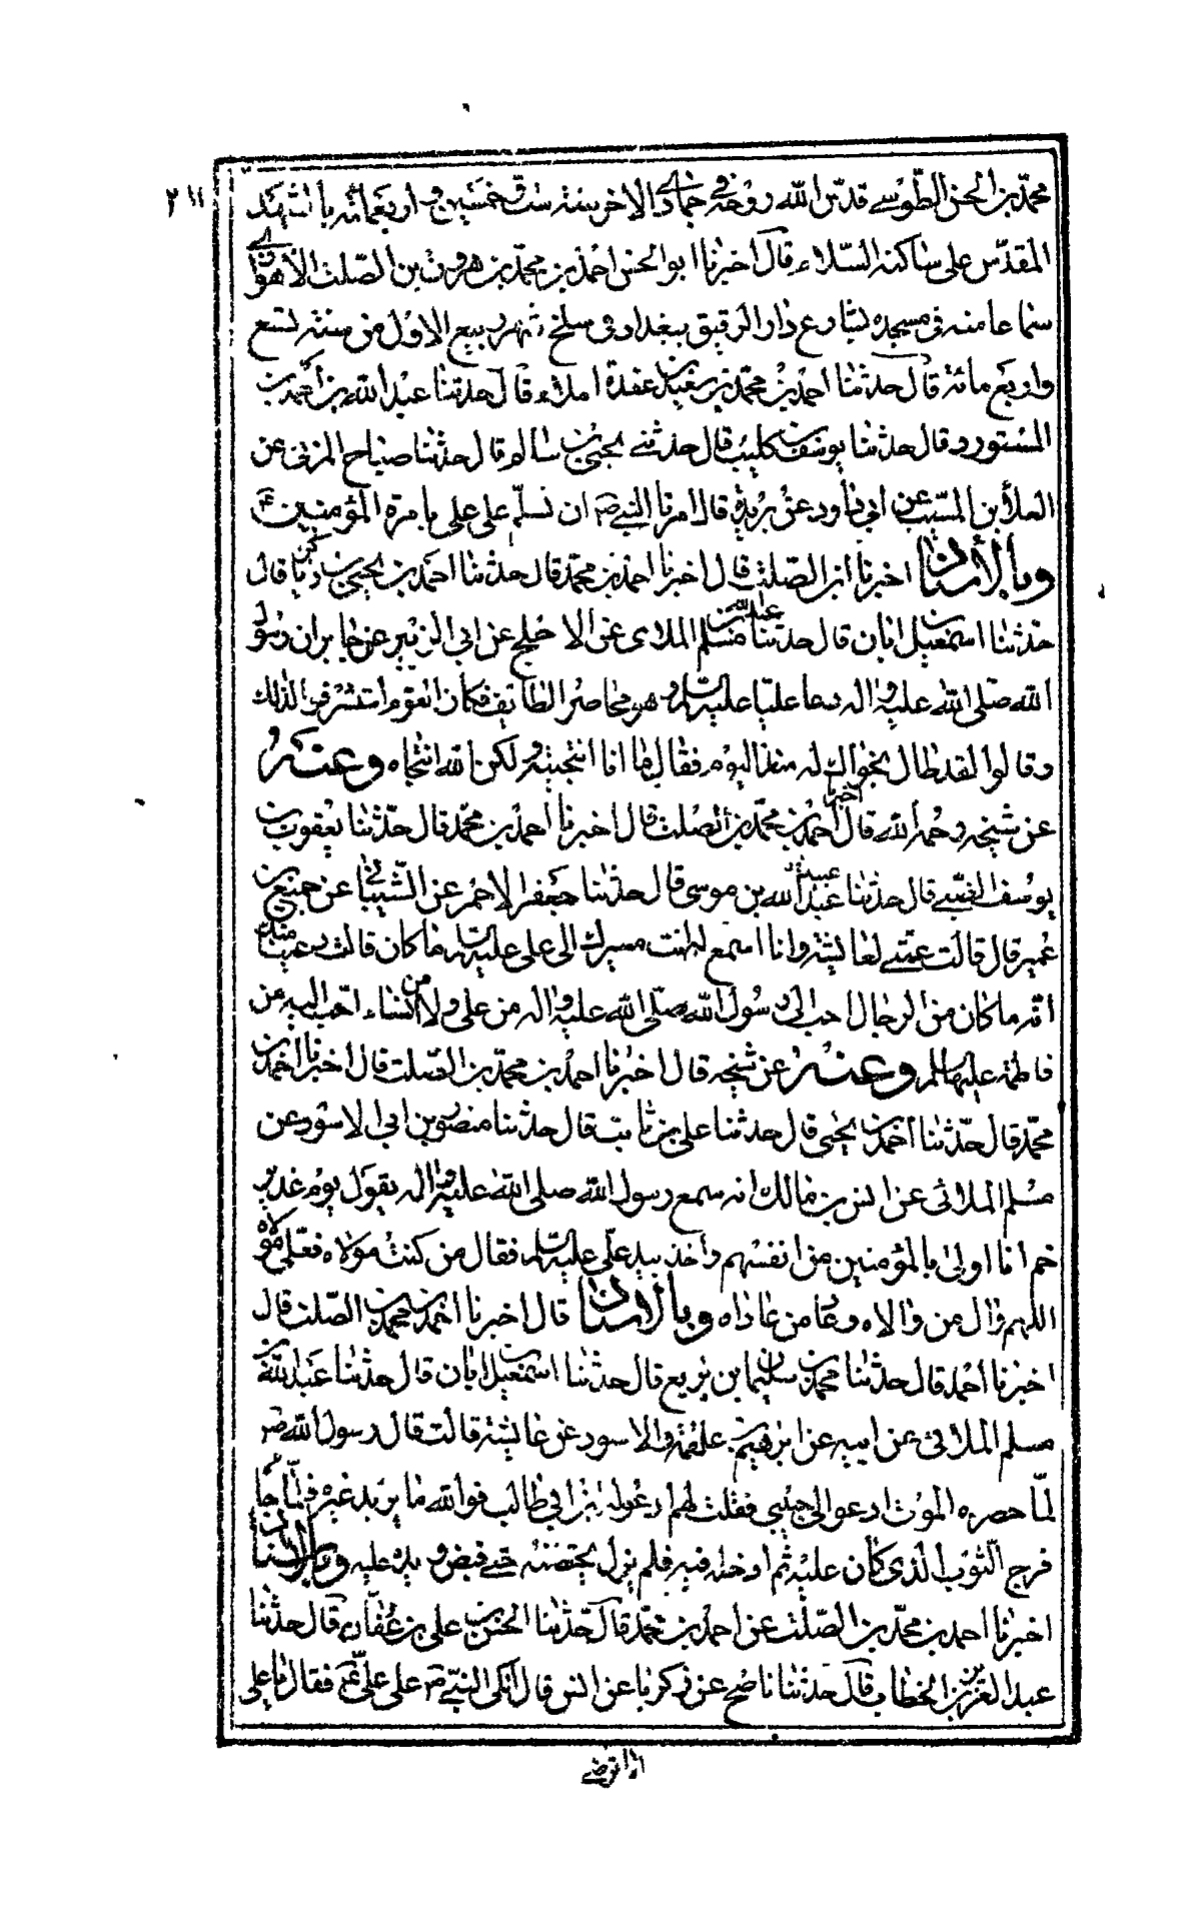 ٢١١
محمّد بن الحسن الطّوسي قدّس الله روحه في جمادى الاخر سنة ست وخمسين و اربعمائه بالمشهد
المقدّس على ساكنه السّلام قال اخبرنا ابو الحسن احمد بن محمّد بن هرون بن الصّلت الاهوازي
سماعا منه في مسجده بشارع دار الرقيق ببغداد في سلخ شهر ربيع الاول من سنة تسع
واربع مائة قال حدثنا احمد بن محمّد بن سعيد بن عقدة املاء قال حدثنا عبد الله بن احمد بن
المستورد قال حدثنا يوسف بن كليب قال حدثنى يحيى بن سالم قال حدثنا صباح المزنى عن
العلاء بن المسيّب عن ابي داود عن بريدة قال امرنا النبي ص ان نسلّم على علي بامرة المؤمنين ع
وبالاسناد اخبرنا ابن الصّلت قال اخبرنا احمد بن محمّد قال حدثنا احمد بن يحيى بن زكريا قال
حدثنا اسمعيل ابان قال حدثنا عبد الله بن مسلم الملائى عن الاجلح عن ابي الزبير عن جابر ان رسول
الله صلى الله عليه واله دعا عليّا عليه السلم وهو محاصر الطايف فكان القوم استشرفوا لذلك
وقالوا لقد طال نجواك له منذ اليوم فقال ما انا انتجيته ولكن الله انتجاه وعنه
عن شيخه رحمه الله قال اخبرنا احمد بن محمّد بن الصلت قال اخبرنا احمد بن محمّد قال حدّثنا يعقوب بن
يوسف الضبّي قال حدثنا عبيد الله بن موسى قال حدثنا جعفر الاحمر عن الشّيباني عن جميع بن
عمير قال قالت عمّتي لعايشة وانا اسمع له انت مسيرك الى علي عليه السلم ما كان قالت دعينا منك
انّه ما كان من الرجال احب الى رسول الله صلّى الله عليه واله من علي ولا من النساء احب اليه من
فاطمة عليها السلم وعنه عن شيخه قال اخبرنا احمد بن محمّد بن الصّلت قال اخبرنا احمد بن
محمّد قال حدّثنا احمد بن يحيى قال حدثنا علي بن ثابت قال حدثنا منصور بن ابي الاسود عن
مسلم الملائى عن انس بن مالك انه سمع رسول الله صلى الله عليه واله يقول يوم غدير
خم انا اولى بالمؤمنين من انفسهم واخذ بيد علي عليه السلم فقال من كنت مولاه فعلي مولاه
اللهم وال من والاه وعاد من عاداه وبالاسناد قال اخبرنا احمد بن محمد بن الصّلت قال
اخبرنا احمد قال حدثنا محمد بن سليمان بن بزيع قال حدثنا اسمعيل ابان قال حدثنا عبد الله بن
مسلم الملائى عن ابيه عن ابرهيم عن علقمة والاسود عن عايشة قالت قال رسول الله ص
لمّا حضره الموت ادعوا الي حبيبي فقلت لهم ادعوا له ابن ابي طالب فوالله ما يريد غيره فلمّا جاء
فرج الثوب الذى كان عليه ثم ادخله فيه فلم يزل يحتضنه حتى قبض و يده عليه وبالاسناد
اخبرنا احمد بن محمّد بن الصّلت عن احمد بن محمّد قال حدّثنا الحسن بن علي بن عفان قال حدثنا
عبد العزيز بن الخطاب قال حدثنا ناصح عن زكريا عن انس قال اتكى النبي ص على علي ع فقال يا علي
اما ترضى